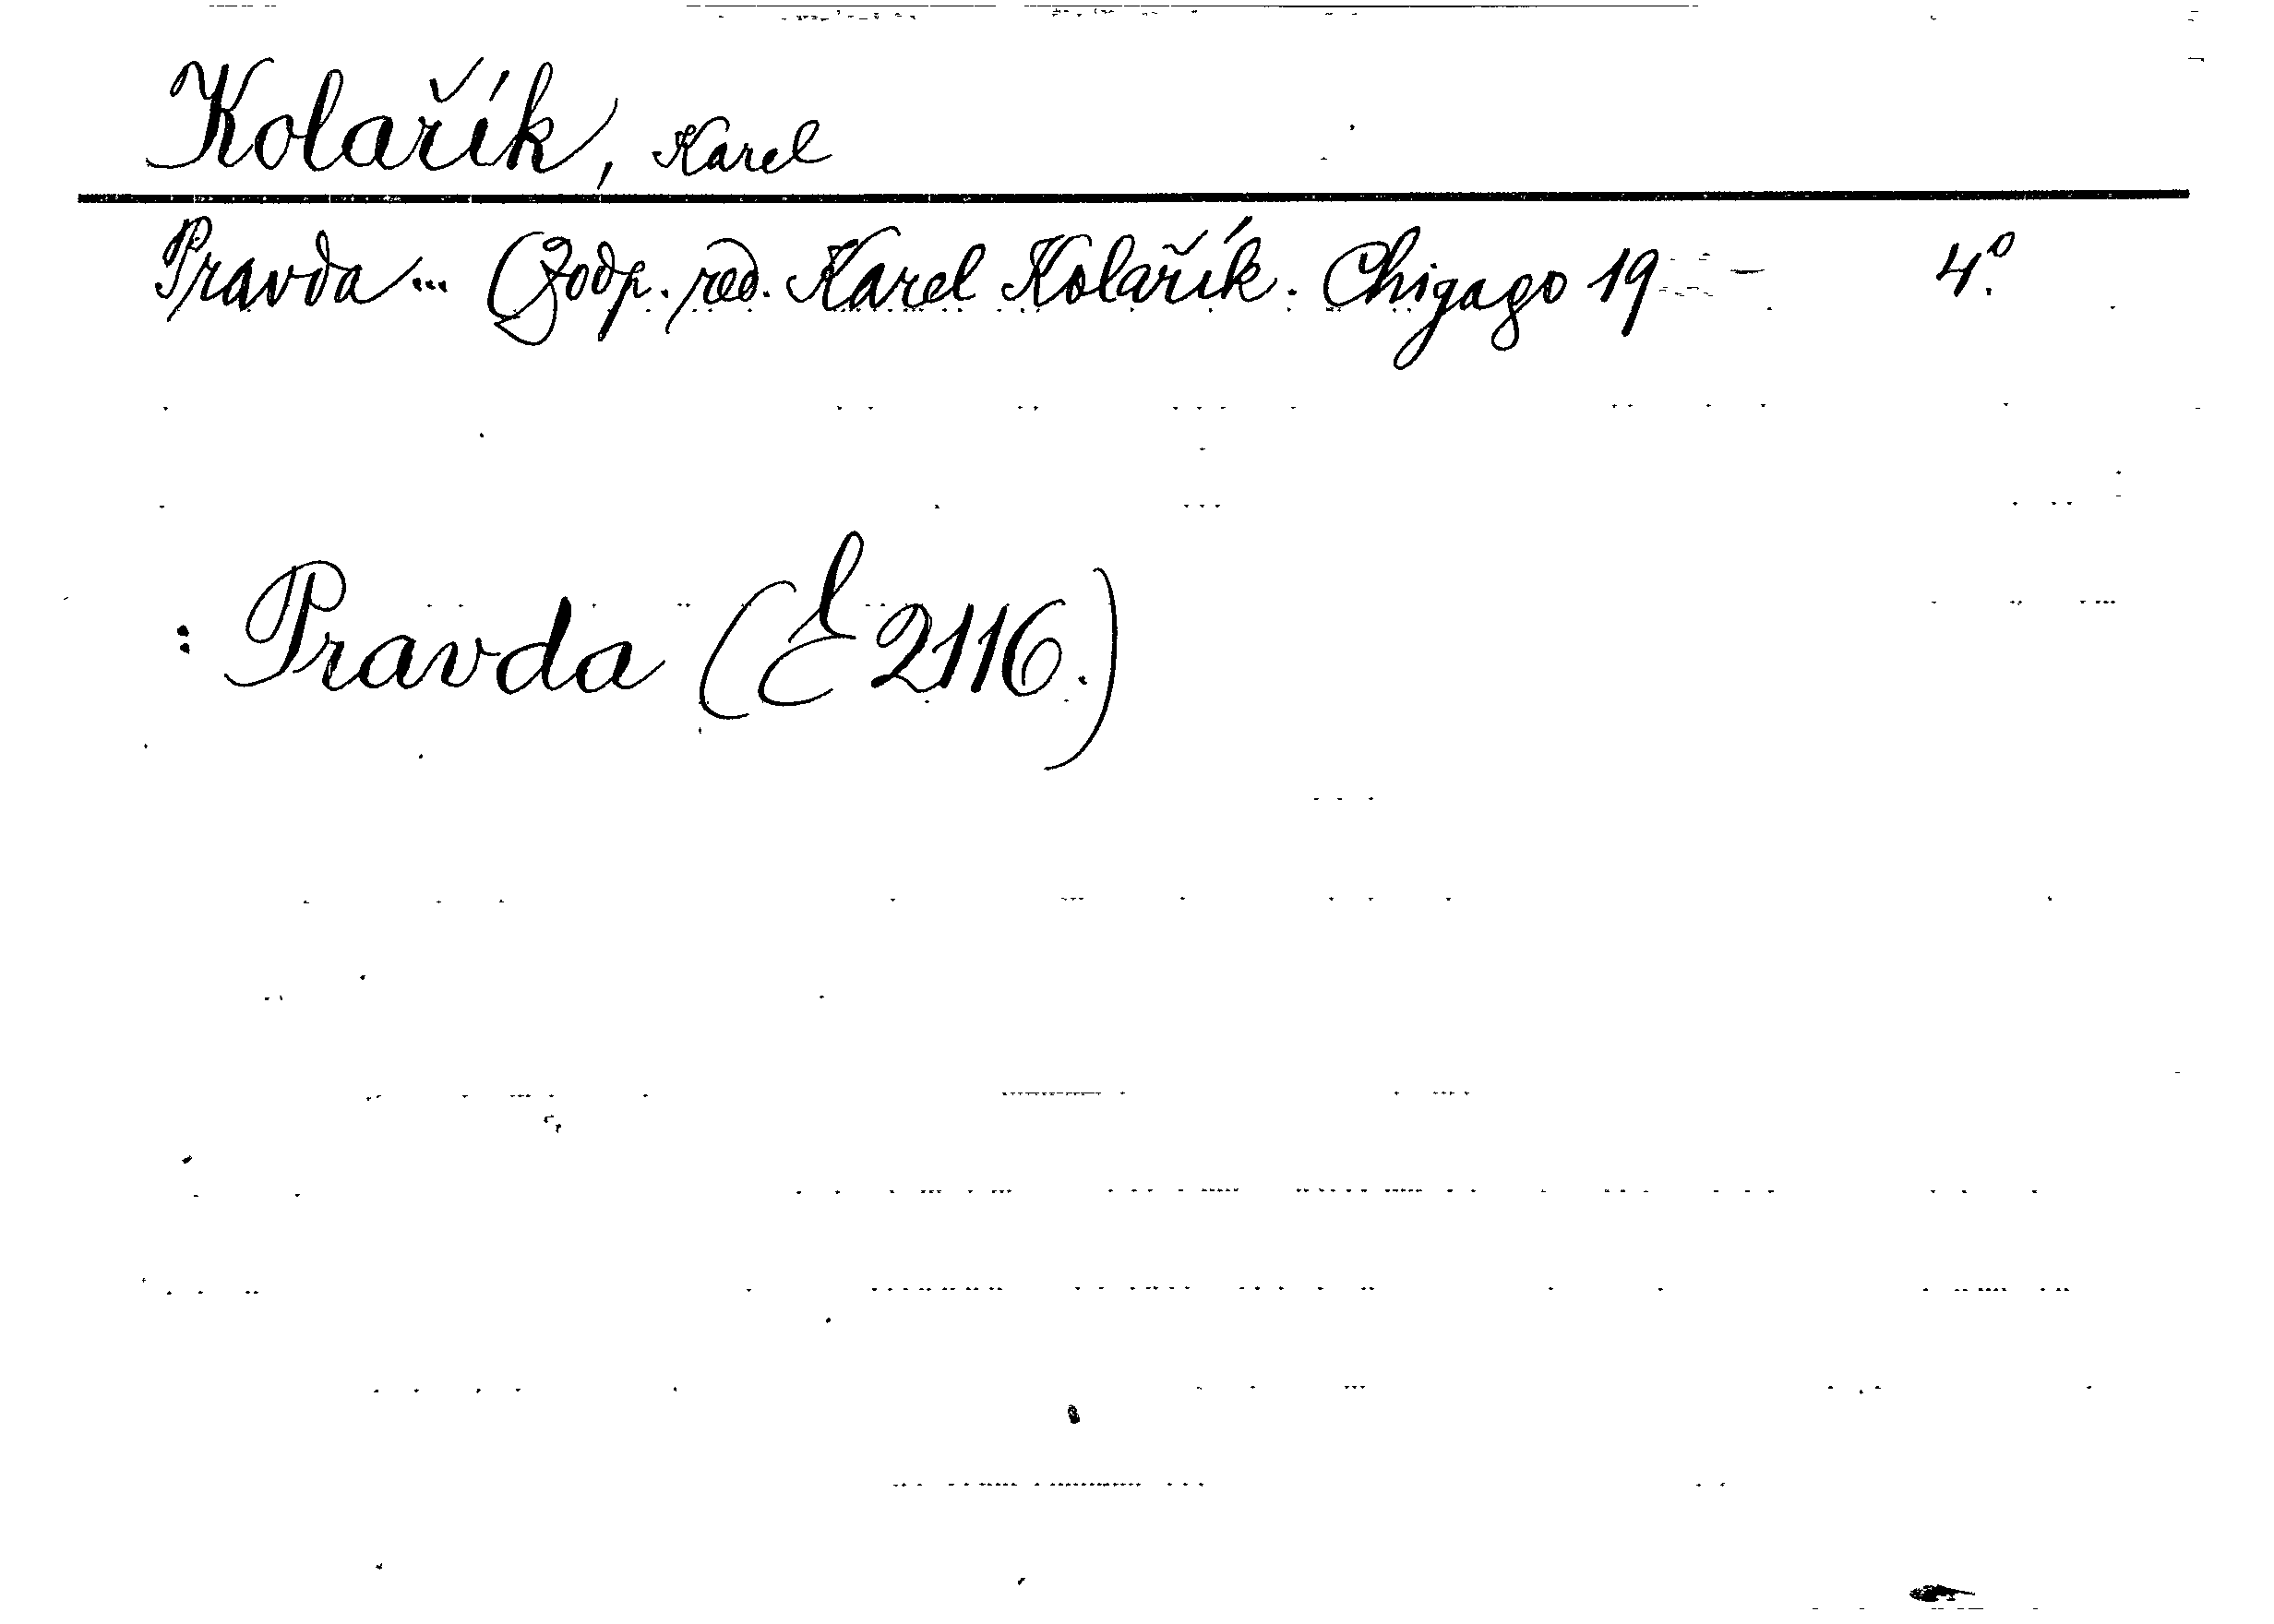 Kolařík, Karel
Pravda... (Zodp. red. Karel Kolařík. Chigago 19 - 4.°
: Pravda (E 2116.)